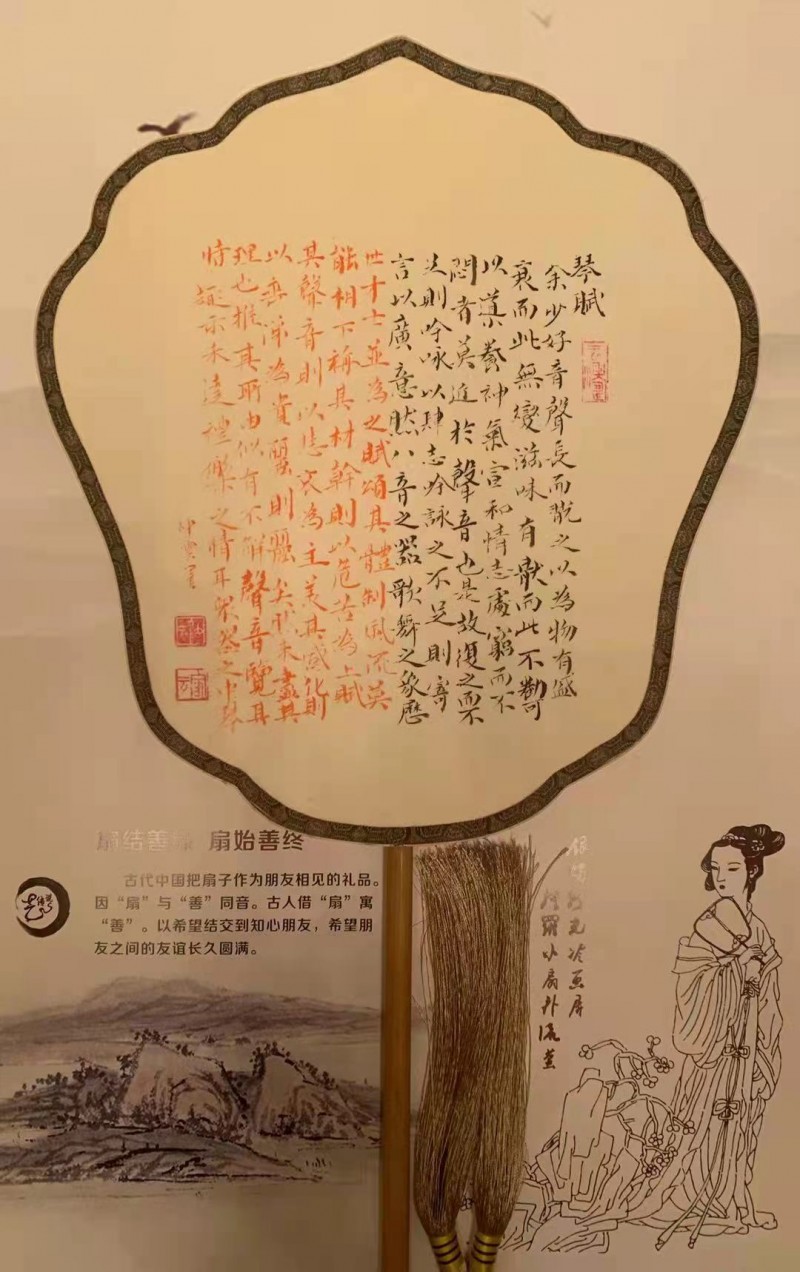 琴賦
余少好音聲長而翫之以為物有盛
衰而此無變滋味有猒而此不勌可
以導養神氣宣和情志處窮而不
悶者莫近於聲音也是故復之而不
足則吟咏以肆志吟詠之不足則寄
言以廣意然八音之器歌舞之象歷
世才士並為之賦頌其體制風流莫
能相下稱其材幹則以危苦為上賦
其聲音則以悲哀為主美其感化則
以垂涕為貴麗則麗矣然未盡其
理也推其所由似有不解聲音覽其
亦未達禮樂之情耳眾器之中琴
扇结善缘 扇始善终
古代中国把扇子作为朋友相见的礼品。
因“扇”与“善”同音。古人借“扇”寓
“善”。以希望结交到知心朋友，希望朋
友之间的友谊长久圆满。
光冷画屏
羅小扇扑流萤